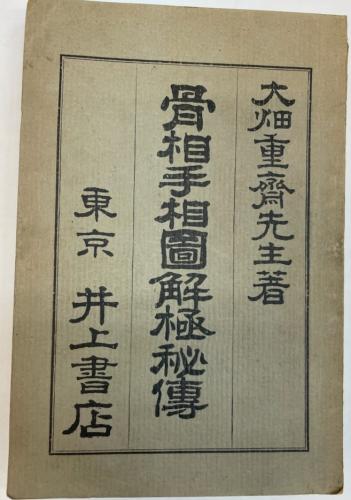 大畑重齋先生著
骨相手相圖解極秘傳
東京 井上書店